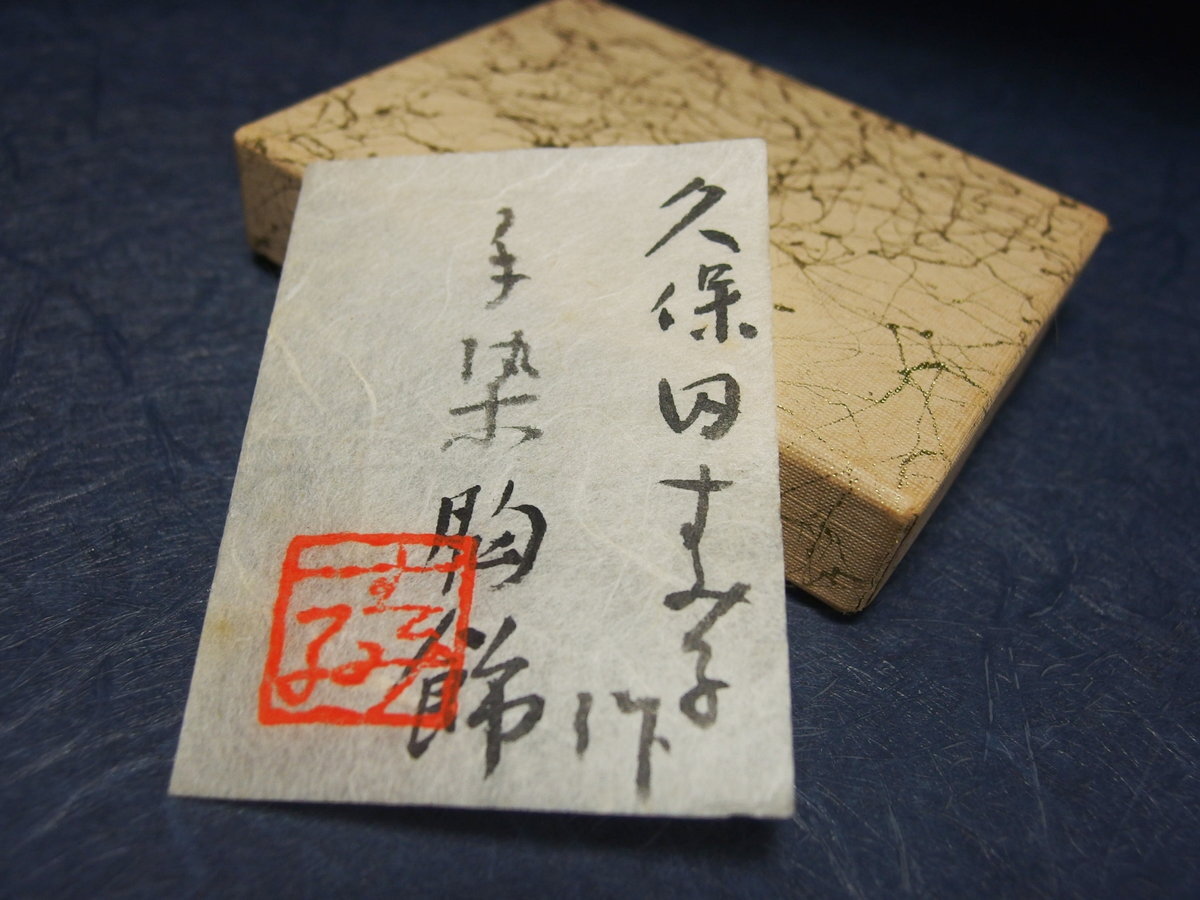 久保田すみ子
作
手染胸飾
すみ子